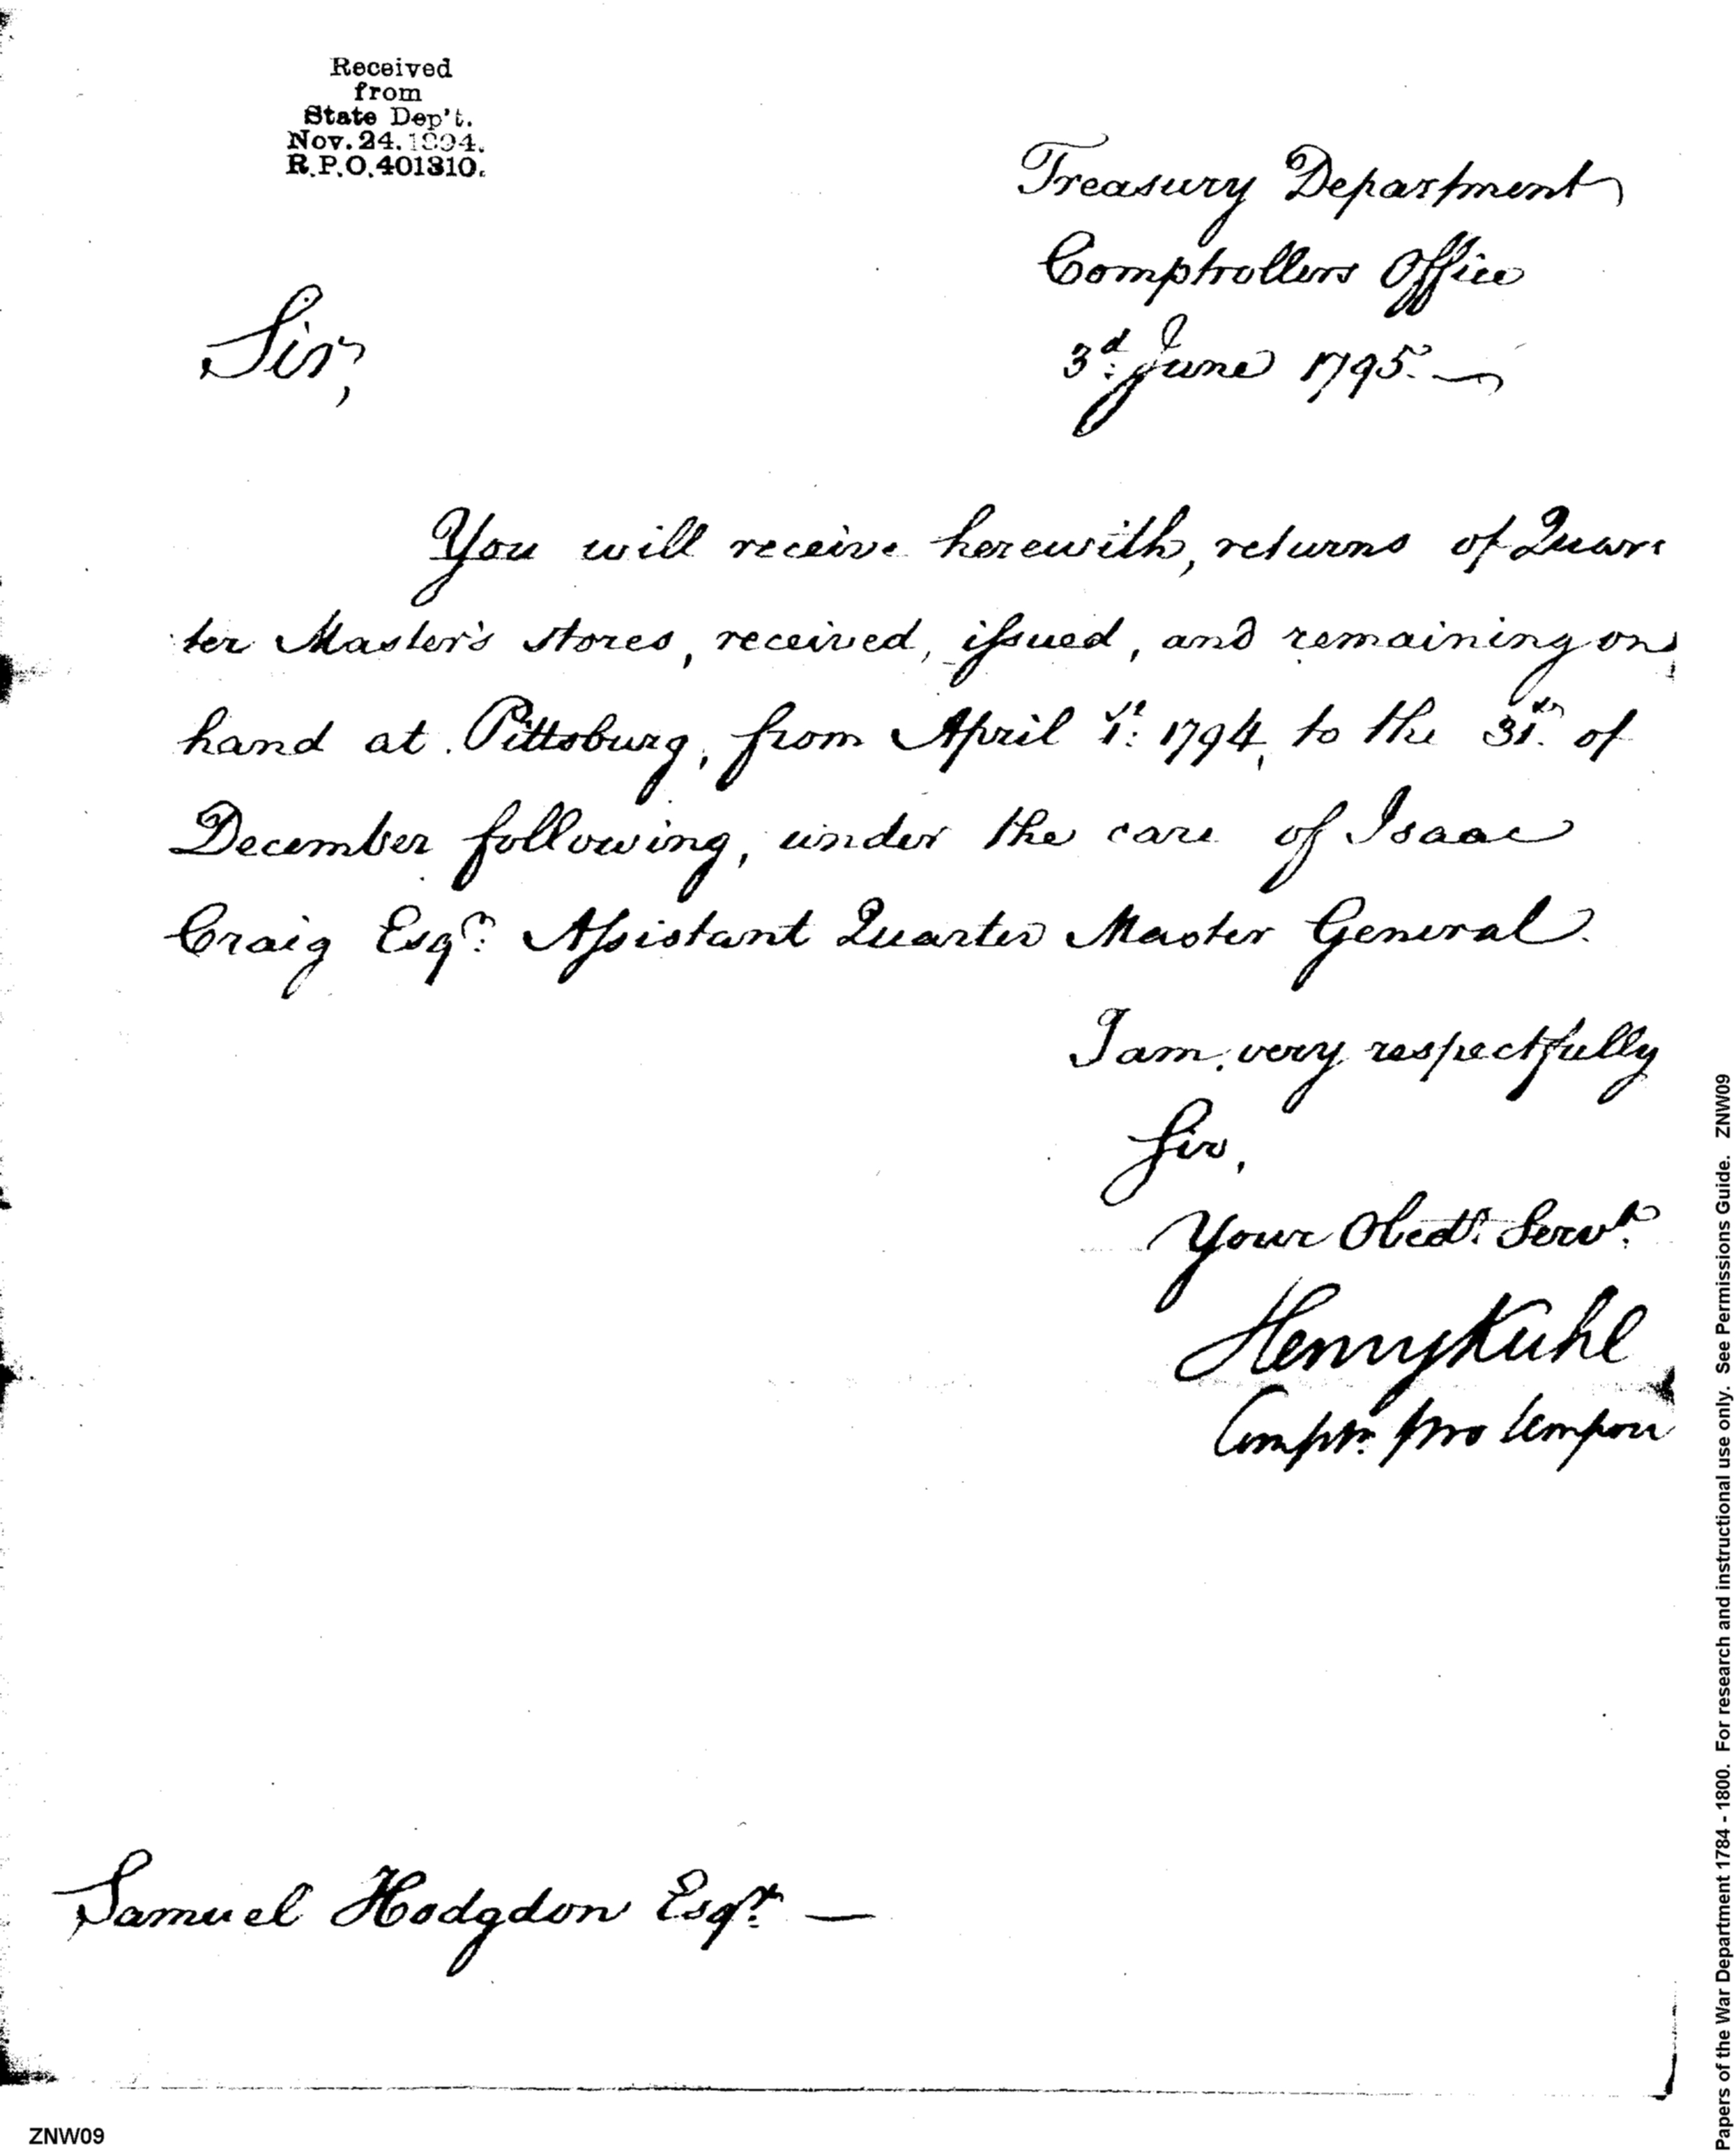 Received
from
State Dep't.
Nov. 24. 1894.
R.P.O. 401310.
Treasury Department
Comptrollers Office
3d. June 1795.
Sir,
You will receive herewith, returns of Quar
ter Master's stores, received, issued, and remaining on
hand at Pittsburg, from April 1st: 1794, to the 31st. of
December following, under the care of Isaac
Craig Esqr: Assistant Quarter Master General.
I am very respectfully
Sir,
Your Obedt: Servt.
Henry Kuhl
Comptr. pro tempore
Samuel Hodgdon Esqr. —
ZNW09
Papers of the War Department 1784 - 1800. For research and instructional use only. See Permissions Guide. ZNW09